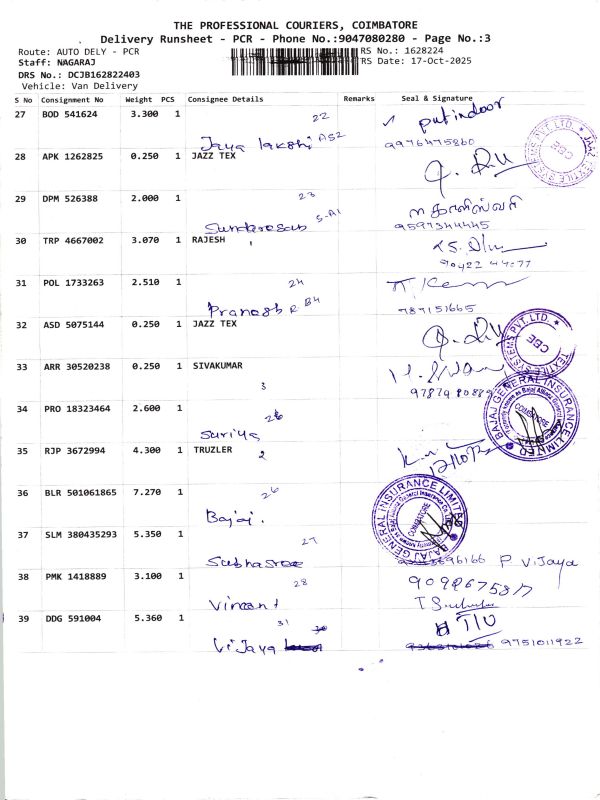 THE PROFESSIONAL COURIERS, COIMBATORE
Delivery Runsheet - PCR - Phone No.:9047080280 - Page No.:3
Route: AUTO DELY - PCR RS No.: 1628224
Staff: NAGARAJ RS Date: 17-Oct-2025
DRS No.: DCJB162822403
Vehicle: Van Delivery
S No Consignment No Weight PCS Consignee Details Remarks Seal & Signature
27 BOD 541624 3.300 1 22
Jaya AS2 9976475860
28 APK 1262825 0.250 1 JAZZ TEX
29 DPM 526388 2.000 1 23
S-A1 9597344445
30 TRP 4667002 3.070 1 RAJESH 1
90422 44077
31 POL 1733263 2.510 1 24
Pranesh R B4 787151665
32 ASD 5075144 0.250 1 JAZZ TEX
33 ARR 30520238 0.250 1 SIVAKUMAR
3
34 PRO 18323464 2.600 1
Suriya
35 RJP 3672994 4.300 1 TRUZLER
2
36 BLR 501061865 7.270 1 26
Bajaj.
37 SLM 380435293 5.350 1 27
Subhasree P Vijaya
38 PMK 1418889 3.100 1 28
Vincent
39 DDG 591004 5.360 1 31
Vijaya 9751011922
JAAZ TEXTILE SYSTEMS PVT.LTD. CBE
TEXTILE SYSTEMS PVT.LTD. CBE
BAJAJ GENERAL INSURANCE LIMITED COIMBATORE
BAJAJ GENERAL INSURANCE LIMITED COIMBATORE